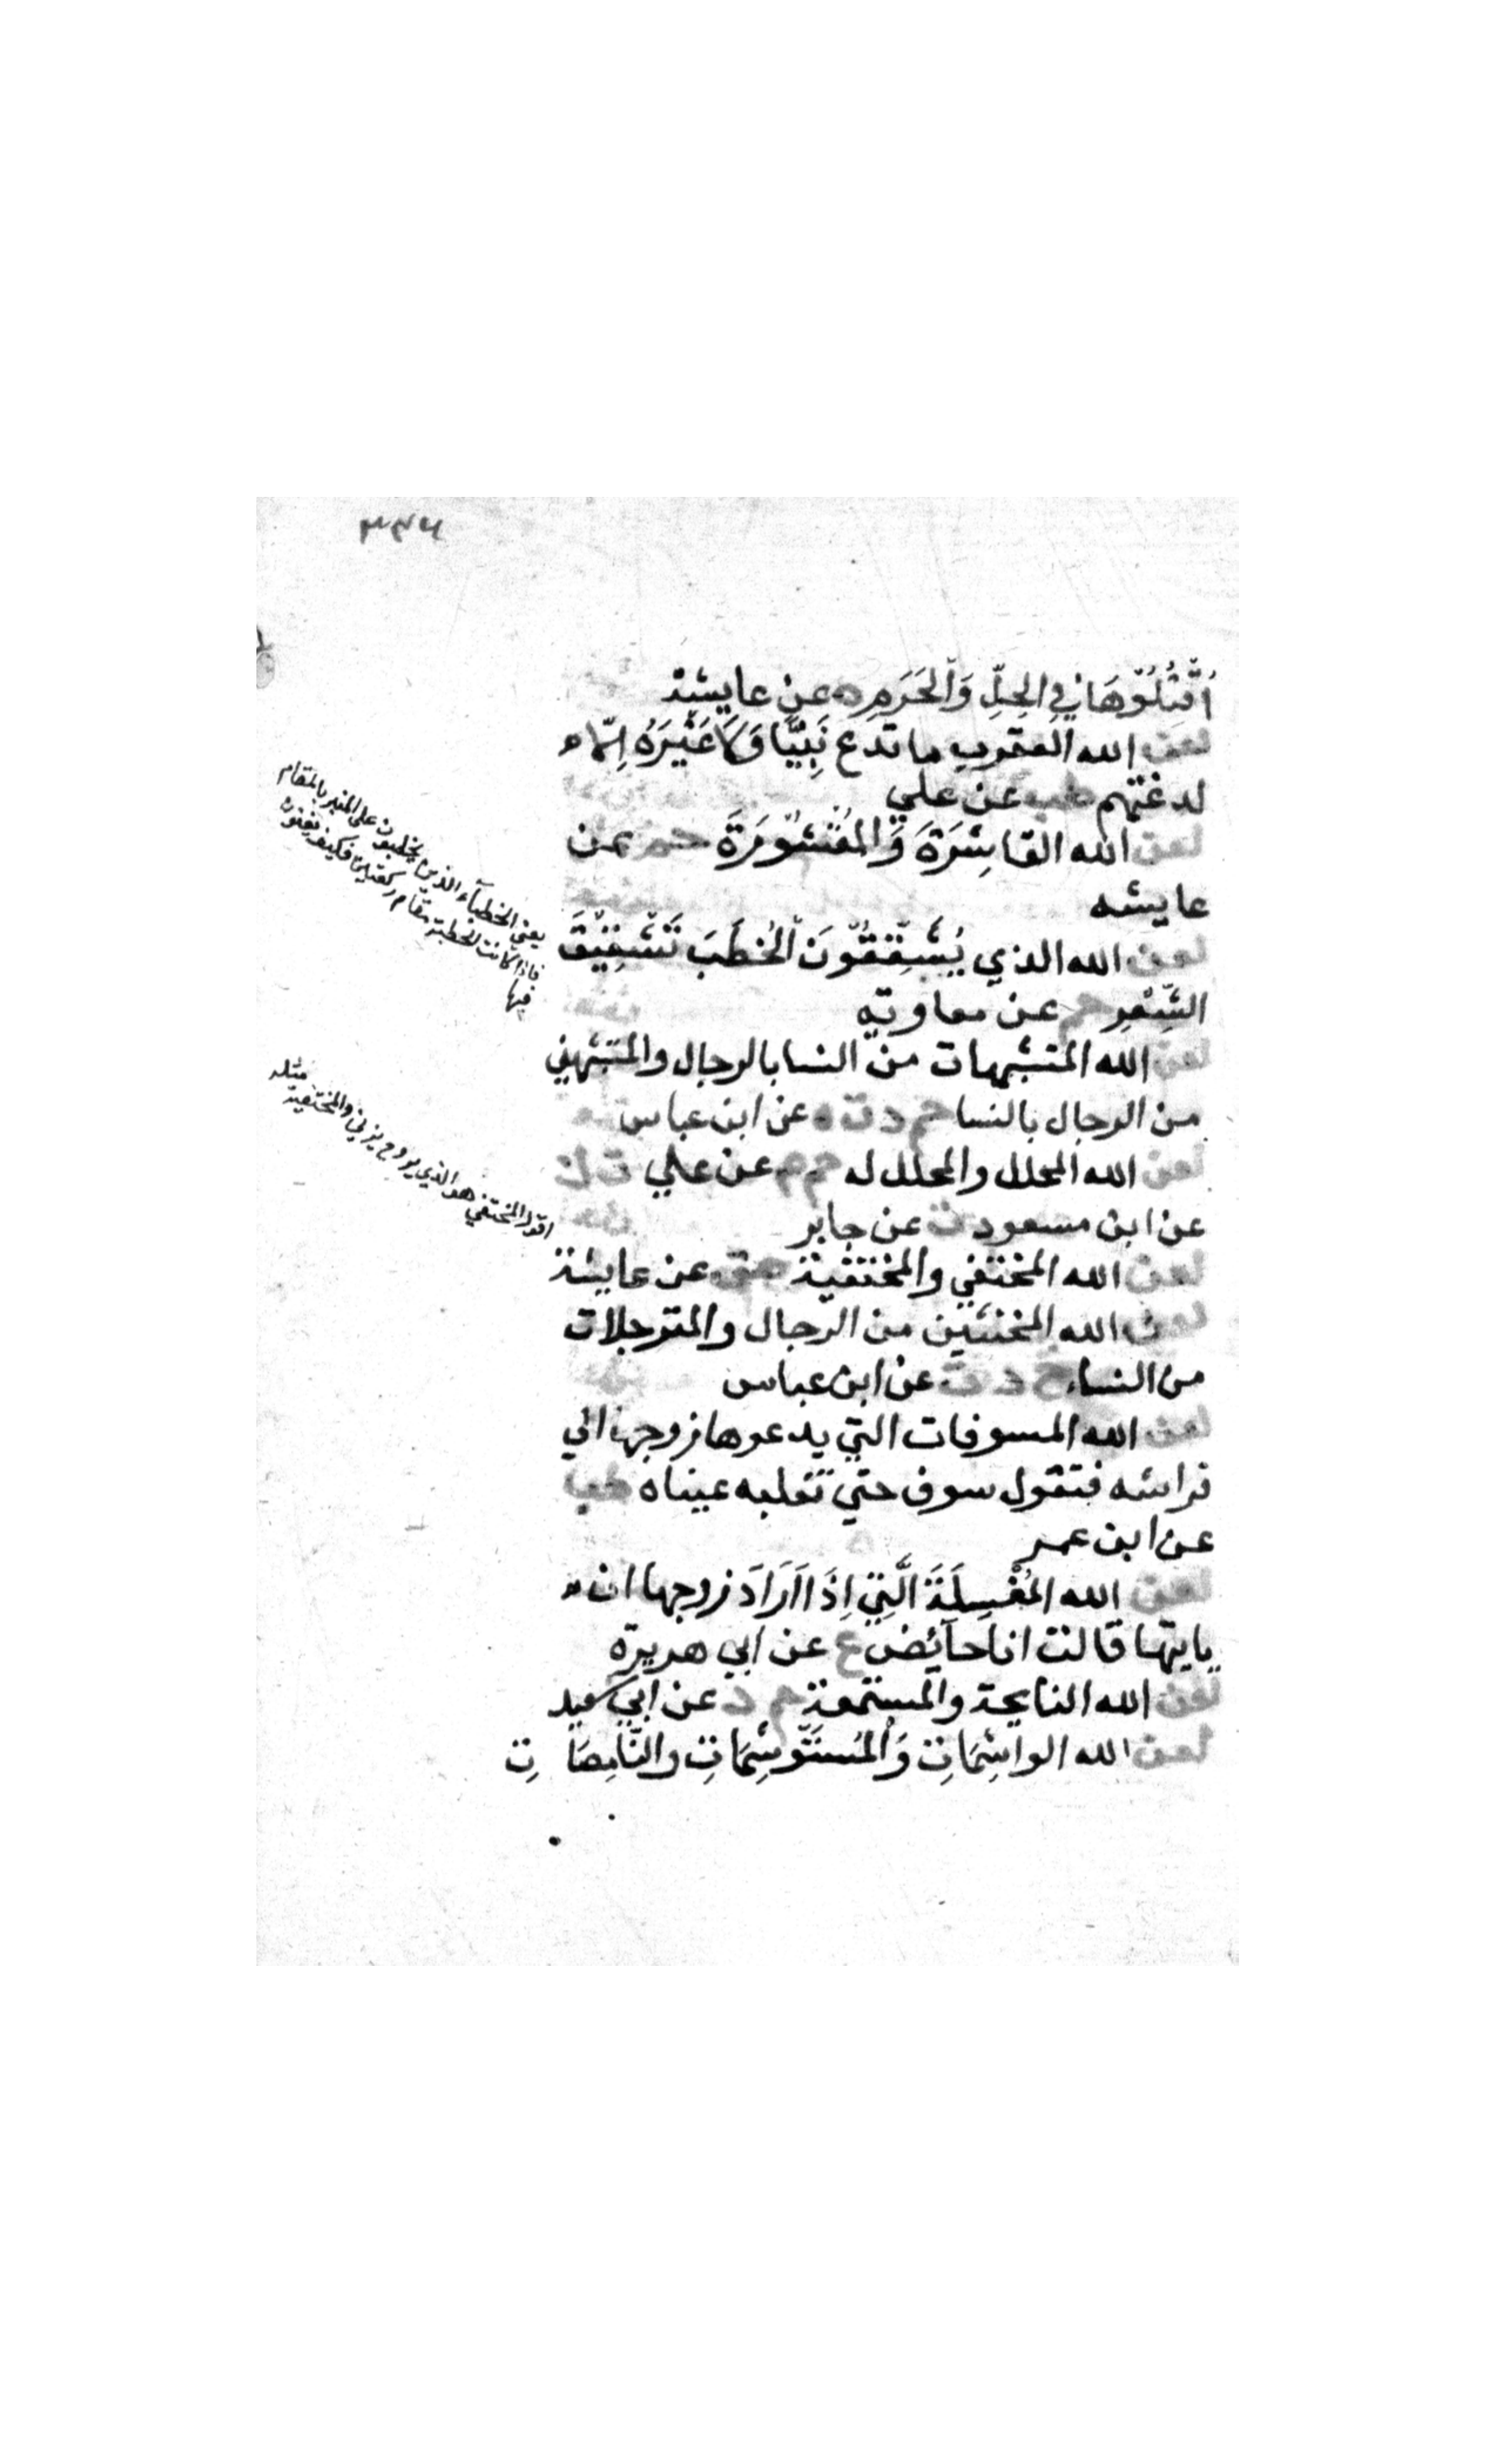 ٣٣٦
اُقْتُلُوْهَا فِي الحِلِّ وَالْحَرَمِ ه عن عايشة
لعن الله العقرب ما تدع نَبِيًّا وَلَا غَيْرَهُ اِلَّا
لدغتهم هب عن علي
لعن الله القَاشِرَةَ وَالمَقْشُوْرَةَ حم عن
عايشه
لعن الله الذي يُشَقِّقُوْنَ الْخُطَبَ تَشْقِيْقَ
الشِّعْرِ حم عن معاوية
لعن الله المتشبهات من النسا بالرجال والمتشبهين
من الرجال بالنسا حم د ت ه عن ابن عباس
لعن الله المحلل والمحلل له حم عن علي ت ن
عن ابن مسعود ت عن جابر
لعن الله المختفي والمختفية هق عن عايشة
لعن الله المخنثين من الرجال والمترجلات
من النساء خ د ت عن ابن عباس
لعن الله المسوفات التي يدعوها زوجها الي
فراشه فتقول سوف حتي تغلبه عيناه طب
عن ابن عمر
لعن الله المُغْسِلَةَ الَّتِيْ اِذَا اَرَادَ زوجها ان
ياتيها قالت انا حآئض ع عن ابي هريرة
لعن الله النايحة والمستمعة حم د عن ابي سعيد
لعن الله الواشِمَاتِ وَالْمُسْتَوْشِمَاتِ والنَّامِصَاتِ
يعني الخطبآء الذين يخطبون على المنبر بالمقام
فاذا كانت الخطبة مقام ركعتين فكيف يغنون
فيها
اقول المختفي هو الذي يروح يزني والمختفية مثله